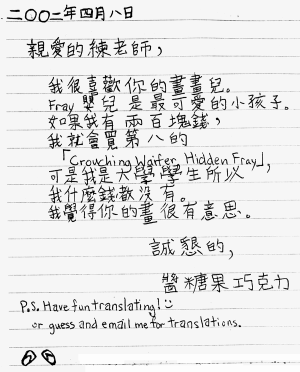 二〇〇二年四月八日
親愛的練老師，
我很喜歡你的畫畫兒。
Fray 嬰兒是最可愛的小孩子。
如果我有兩百塊錢，
我就會買第八的
「Crouching Waiter, Hidden Fray」，
可是我是大學學生所以
我什麼錢都沒有。
我覺得你的畫很有意思。
誠懇的，
醬糖果巧克力
P.S. Have fun translating! :)
or guess and email me for translations.